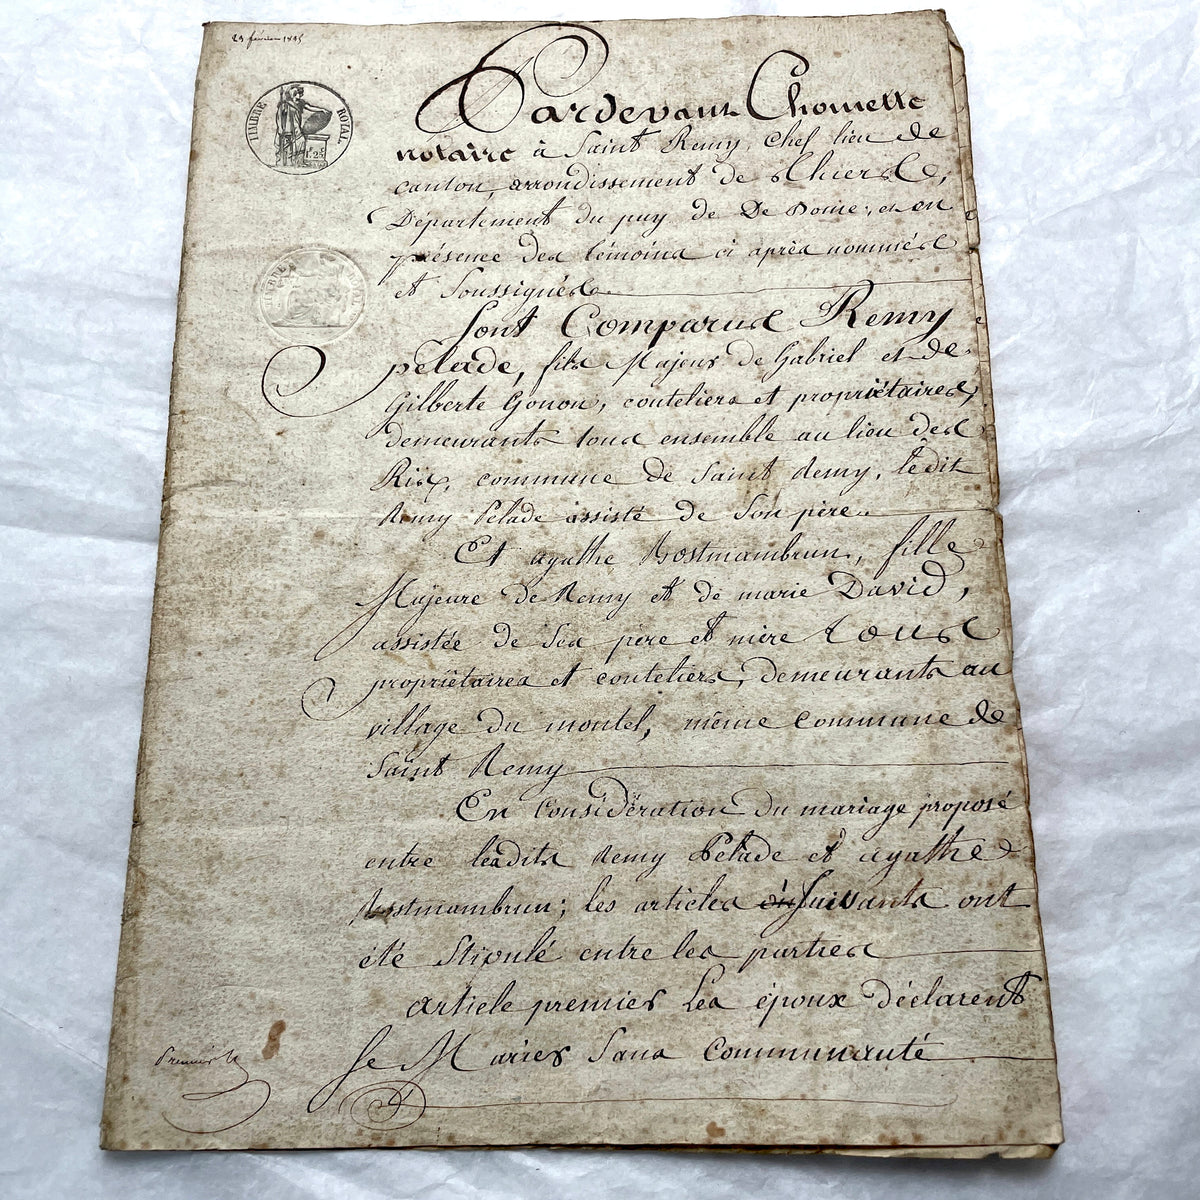 23 février 1835
TIMBRE ROYAL
1f. 25c
Pardevant Chomette
notaire à Saint Remy, chef lieu de
canton, arrondissement de thiers,
Département du puy de De Dome, et en
présence des témoins ci après nommés
et Soussignés
Sont Comparus Remy
pelade, fils Majeur de Gabriel et de
Gilberte Gonon, couteliers et propriétaires,
demeurants tous ensemble au lieu des
Rix, commune de Saint Remy, ledit
Remy Pelade assisté de Son père.
Et agathe Rostmambrun, fille
Majeure de Remy et de marie David,
assistée de Ses père et mère tous
propriétaires et couteliers, demeurants au
village du montel, même commune de
Saint Remy
En Considération du mariage proposé
entre lesdits Remy Pelade et agathe
Rostmambrun; les articles Suivants ont
été Stipulé entre les parties
article premier Les époux déclarent
Se Marier Sans Communauté